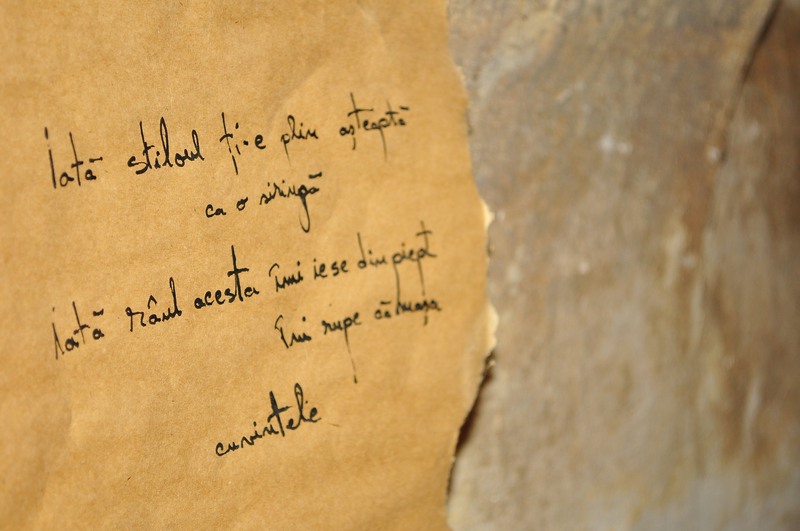 Iată stiloul ți-e plin așteaptă
ca o siringă
Iată râul acesta îmi iese din piept
îmi rupe cămașa
cuvintele